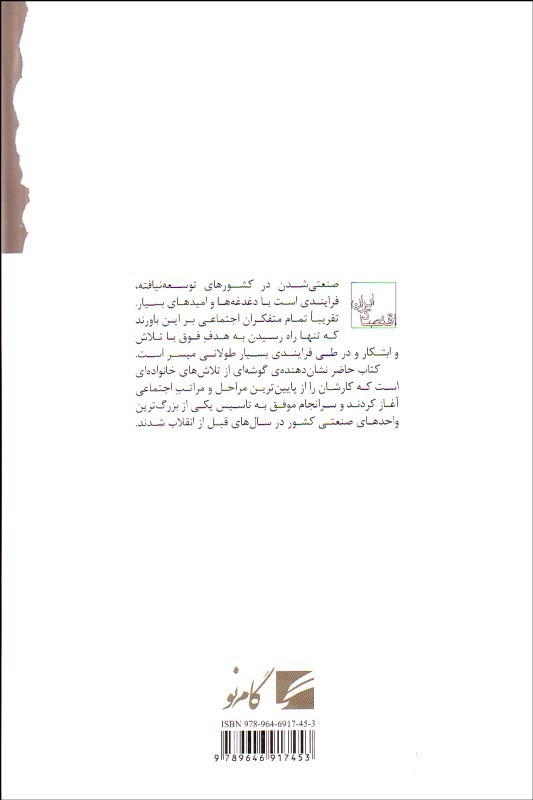 صنعتی‌شدن در کشورهای توسعه‌نیافته،
فرایندی است با دغدغه‌ها و امیدهای بسیار.
تقریباً تمام متفکران اجتماعی بر این باورند
که تنها راه رسیدن به هدفِ فوق با تلاش
و ابتکار و در طی فرایندی بسیار طولانی میسر است.
کتاب حاضر نشان‌دهنده‌ی گوشه‌ای از تلاش‌های خانواده‌ای
است که کارشان را از پایین‌ترین مراحل و مراتبِ اجتماعی
آغاز کردند و سرانجام موفق به تاسیس یکی از بزرگ‌ترین
واحدهای صنعتی کشور در سال‌های قبل از انقلاب شدند.
اقتصاد ایران
گام نو
ISBN 978-964-6917-45-3
9 789646 917453